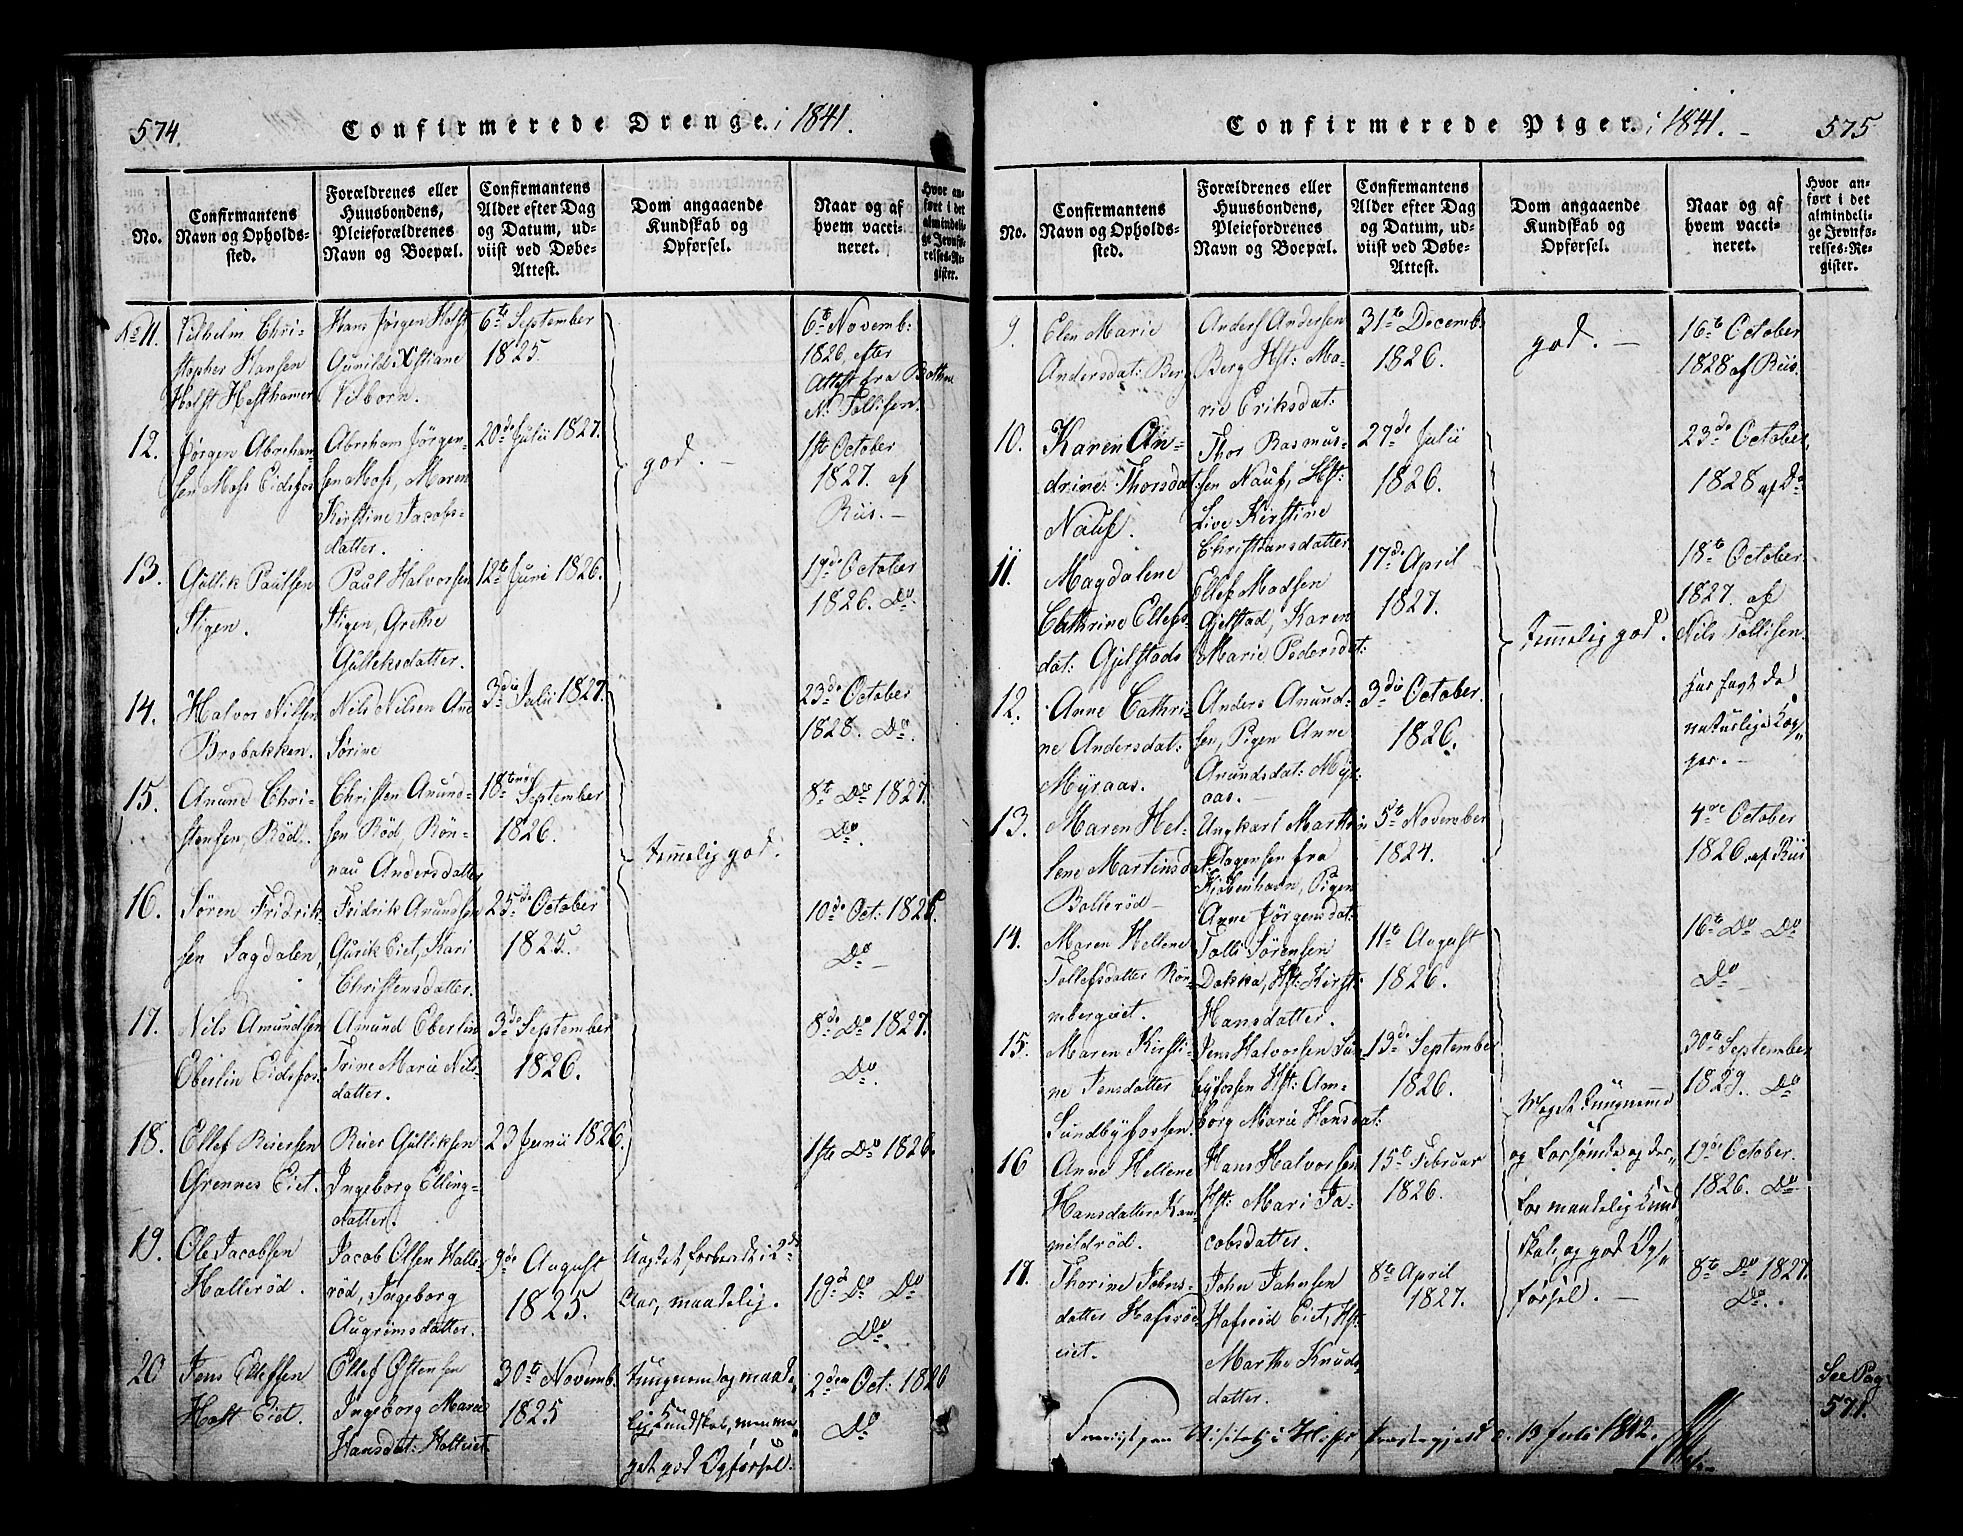 574.
Confirmerede Drenge. i 1841.
No.
Confirmantens
Navn og Opholds-
sted.
Forældrenes eller
Huusbondens,
Pleieforældrenes
Navn og Boepæl.
Confirmantens
Alder efter Dag
og Datum, ud-
viist ved Døbe-
Attest.
Dom angaaende
Kundskab og
Opførsel.
Naar og af
hvem vacci-
neret.
Hvor an-
ført i det
almindeli-
ge Jevnfø-
relses-Re-
gister.
No 11.
Vilhelm Chri-
stopher Hansen
Holst Hesthamer
Hans Jørgen Holst
Gunild Xstiane
Vilborn.
6te September
1825.
6te Novemb:
1826 efter
Attest fra
N: Tollisen.
12.
Jørgen Abraham-
sen Moss Eidsfos
Abraham Jørgen-
sen Moss, Maren
Kirstine Jacobs-
datter.
20de Julii 1827.
god. -
1ste October
1827. af
Riis. -
13.
Gullik Paulsen
Stigen.
Paul Halvorsen
Stigen, Grethe
Gulleksdatter.
12te Juni 1826.
19de October
1826. Do.
14.
Halvor Nilsen
Brobakken.
Nils Nilsen Ane
Sørine
3die Julii 1827.
23de October
1828. Do.
15.
Anund Chri-
stensen, Rød.
Christen Anund-
sen Rød, Røn-
nau Andersdatter
18
September
1826.
temelig god.
8te Do 1827.
Do.
16.
Søren Fridrik-
sen Sagdalen,
Fridrik Anundsen
Gurik Eiet, Kari
Christensdatter.
25de October
1825.
10de Oct: 1826.
Do -
17.
Nils Amundsen
Eberlin Eidsfos.
Amund Eberlin
Trine Marie Nils-
datter.
3de September
1826.
8de Do 1827.
Do.
18.
Ellef Reiersen
Grennes Eiet.
Reier Gulliksen
Ingeborg Elling-
datter.
23 Junii 1826.
1ste Do 1826.
19.
Ole Jacobsen
Hallerød.
Jacob Olsen Halle-
rød, Ingeborg
Augrimsdatter.
9de August
1825.
i 2de
Aar, maadelig.
19d Do Do
Do
20
Jens Ellefsen
Holt Eiet.
Ellef Østensen
Ingeborg Marie
Hansdat: Holteiet.
30te Novemb.
1825
Kundskab, men me-
get god Opførsel.
2den Oct: 1826
Do
Confirmerede Piger. i 1841. -
575
No.
Confirmantens
Navn og Opholds-
sted.
Forældrenes eller
Huusbondens,
Pleiefordrenes
Navn og Boepæl.
Confirmantens
Alder efter Dag
og Datum, ud-
viist ved Døbe-
Attest.
Dom angaaende
Kundskab og
Opførsel.
Naar og af
hvem vacci-
neret.
Hvor an-
ført i det
almindeli-
ge Jevnfø-
relses-Re-
gister.
9.
Elen Marie
Andersdat: Berg
Anders Andersen
Berg Hst: Ma-
rie Eriksdat:
31te Decemb.
1826.
god. -
16te October
1828 af Riis.
10.
Karen An-
drine Thorsdat:
Nauf.
Thor Rasmus-
sen Nauf, Hst:
Live Kirstine
Christiansdatter
27de Julii
1826.
23de October
1828 af Do
11.
Magdalene
Cathrine Ellefs-
dat: Gjelstads
Ellef Madsen
Gjelstad, Karen
Marie Pedersdat:
17de April
1827.
temmelig god.
18te October
1827. af
Nils Tollisen.
12.
Anne Cathri-
ne Andersdat:
Myraas.
Anders Anund-
sen, Pigen Anne
Anundsdat: Myr-
aas. -
3die October.
1826.
har havt de
naturlige Kop-
per. -
13.
Maren Hel-
lene Martinsdat:
Bollerød -
Ungkarl Marthin
fra
Kiøbenhavn, Pigen
Anne Jørgensdat:
5te November
1824.
4de October
1826 af Riis
14.
Maren Hellene
Tollefsdatter Røn-
nbergeiet.
Tolli Sørensen
Dokka, Hst: Kirst:
Hansdatter.
11te August
1826.
16te Do Do
Do
15.
Maren Kirsti-
ne Jensdatter
Sundbyfossen.
Jens Halvorsen Sun-
byfossen Hst: Am-
borg Marie Hansdat:
13de September
1826.
Meget
30te September
1829. Do
16
Anne Hellene
Hansdatter Kam-
mildrød.
Hans Halvorsen
Hst: Mari Ja-
cobsdatter.
15te Februar
1826.
maadelig Kund-
skab, og god Op-
førsel. -
19de October.
1826. Do
17.
Thorine Johns-
datter Hafsrød
eiet.
John Johnsen
Hafsrød Eiet, Hst:
Marthe Knuds-
datter.
8te April
1827.
8te Do 1827.
Do.
See Pag:
571.
Fremvist paa Visitats i Hofs Præstegjeld d. 13 Juli 1842.